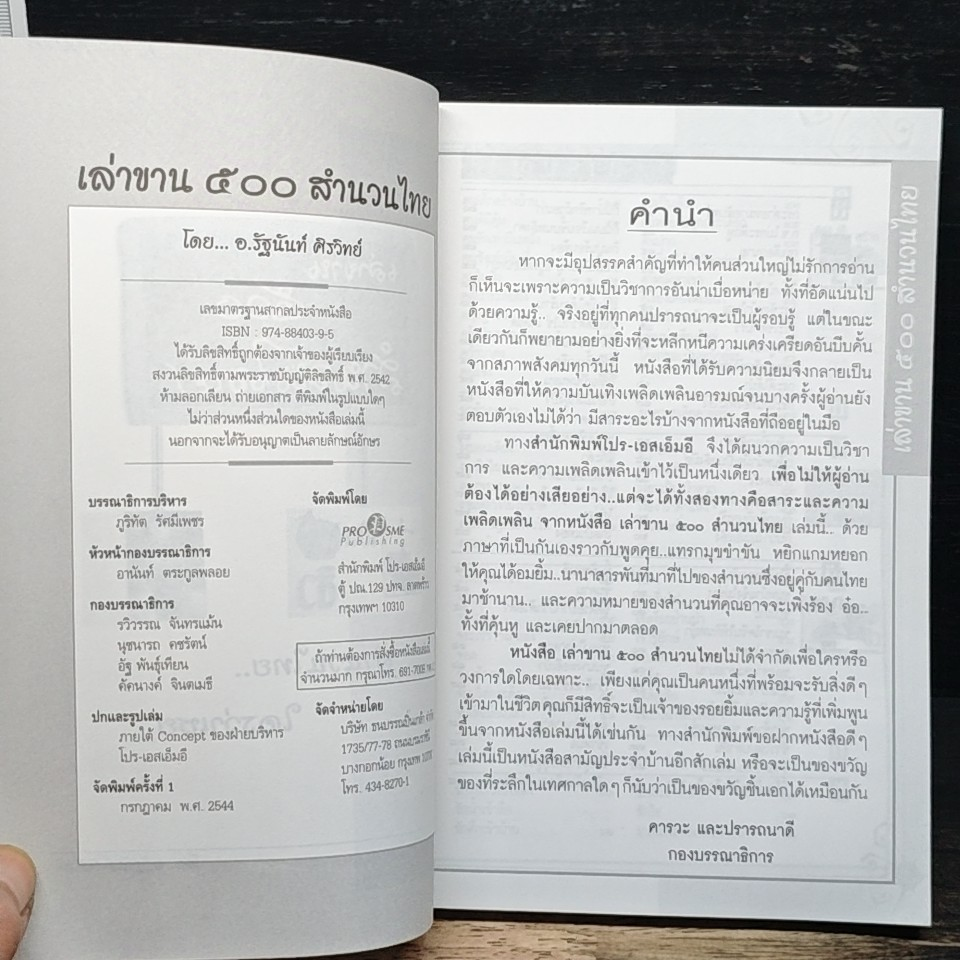 เล่าขาน ๕๐๐ สำนวนไทย
โดย... อ.รัฐนันท์ ศิรวิทย์
เลขมาตรฐานสากลประจำหนังสือ
ISBN : 974-88403-9-5
ได้รับลิขสิทธิ์ถูกต้องจากเจ้าของผู้เรียบเรียง
สงวนลิขสิทธิ์ตามพระราชบัญญัติลิขสิทธิ์ พ.ศ. 2542
ห้ามลอกเลียน ถ่ายเอกสาร ตีพิมพ์ในรูปแบบใดๆ
ไม่ว่าส่วนหนึ่งส่วนใดของหนังสือเล่มนี้
นอกจากจะได้รับอนุญาตเป็นลายลักษณ์อักษร
บรรณาธิการบริหาร
ภูริทัต รัศมีเพชร
หัวหน้ากองบรรณาธิการ
อานันท์ ตระกูลพลอย
กองบรรณาธิการ
รวิวรรณ จันทรแม้น
นุชนารถ คชรัตน์
อัฐ พันธุ์เทียน
คัคนางค์ จินตเมธี
ปกและรูปเล่ม
ภายใต้ Concept ของฝ่ายบริหาร
โปร-เอสเอ็มอี
จัดพิมพ์ครั้งที่ 1
กรกฎาคม พ.ศ. 2544
จัดพิมพ์โดย
PRO SME
Publishing
สำนักพิมพ์ โปร-เอสเอ็มอี
ตู้ ปณ.129 ปทจ. ลาดพร้าว
กรุงเทพฯ 10310
ถ้าท่านต้องการสั่งซื้อหนังสือเล่มนี้
จำนวนมาก กรุณาโทร. 691-7009
จัดจำหน่ายโดย
บริษัท ธนบรรณปิ่นเกล้า
1735/77-78
บางกอกน้อย กรุงเทพ
โทร. 434-8270-1
คำนำ
หากจะมีอุปสรรคสำคัญที่ทำให้คนส่วนใหญ่ไม่รักการอ่าน
ก็เห็นจะเพราะความเป็นวิชาการอันน่าเบื่อหน่าย ทั้งที่อัดแน่นไป
ด้วยความรู้.. จริงอยู่ที่ทุกคนปรารถนาจะเป็นผู้รอบรู้ แต่ในขณะ
เดียวกันก็พยายามอย่างยิ่งที่จะหลีกหนีความเคร่งเครียดอันบีบคั้น
จากสภาพสังคมทุกวันนี้ หนังสือที่ได้รับความนิยมจึงกลายเป็น
หนังสือที่ให้ความบันเทิงเพลิดเพลินอารมณ์จนบางครั้งผู้อ่านยัง
ตอบตัวเองไม่ได้ว่า มีสาระอะไรบ้างจากหนังสือที่ถืออยู่ในมือ
ทางสำนักพิมพ์โปร-เอสเอ็มอี จึงได้ผนวกความเป็นวิชา
การ และความเพลิดเพลินเข้าไว้เป็นหนึ่งเดียว เพื่อไม่ให้ผู้อ่าน
ต้องได้อย่างเสียอย่าง..แต่จะได้ทั้งสองทางคือสาระและความ
เพลิดเพลิน จากหนังสือ เล่าขาน ๕๐๐ สำนวนไทย เล่มนี้.. ด้วย
ภาษาที่เป็นกันเองราวกับพูดคุย..แทรกมุขขำขัน หยิกแกมหยอก
ให้คุณได้อมยิ้ม..นานาสารพันที่มาที่ไปของสำนวนซึ่งอยู่คู่กับคนไทย
มาช้านาน.. และความหมายของสำนวนที่คุณอาจจะเพิ่งร้อง อ๋อ..
ทั้งที่คุ้นหู และเคยปากมาตลอด
หนังสือ เล่าขาน ๕๐๐ สำนวนไทยไม่ได้จำกัดเพื่อใครหรือ
วงการใดโดยเฉพาะ.. เพียงแค่คุณเป็นคนหนึ่งที่พร้อมจะรับสิ่งดีๆ
เข้ามาในชีวิต คุณก็มีสิทธิ์จะเป็นเจ้าของรอยยิ้มและความรู้ที่เพิ่มพูน
ขึ้นจากหนังสือเล่มนี้ได้เช่นกัน ทางสำนักพิมพ์ขอฝากหนังสือดีๆ
เล่มนี้เป็นหนังสือสามัญประจำบ้านอีกสักเล่ม หรือจะเป็นของขวัญ
ของที่ระลึกในเทศกาลใดๆ ก็นับว่าเป็นของขวัญชิ้นเอกได้เหมือนกัน
คารวะ และปรารถนาดี
กองบรรณาธิการ
เล่าขาน ๕๐๐ สำนวนไทย